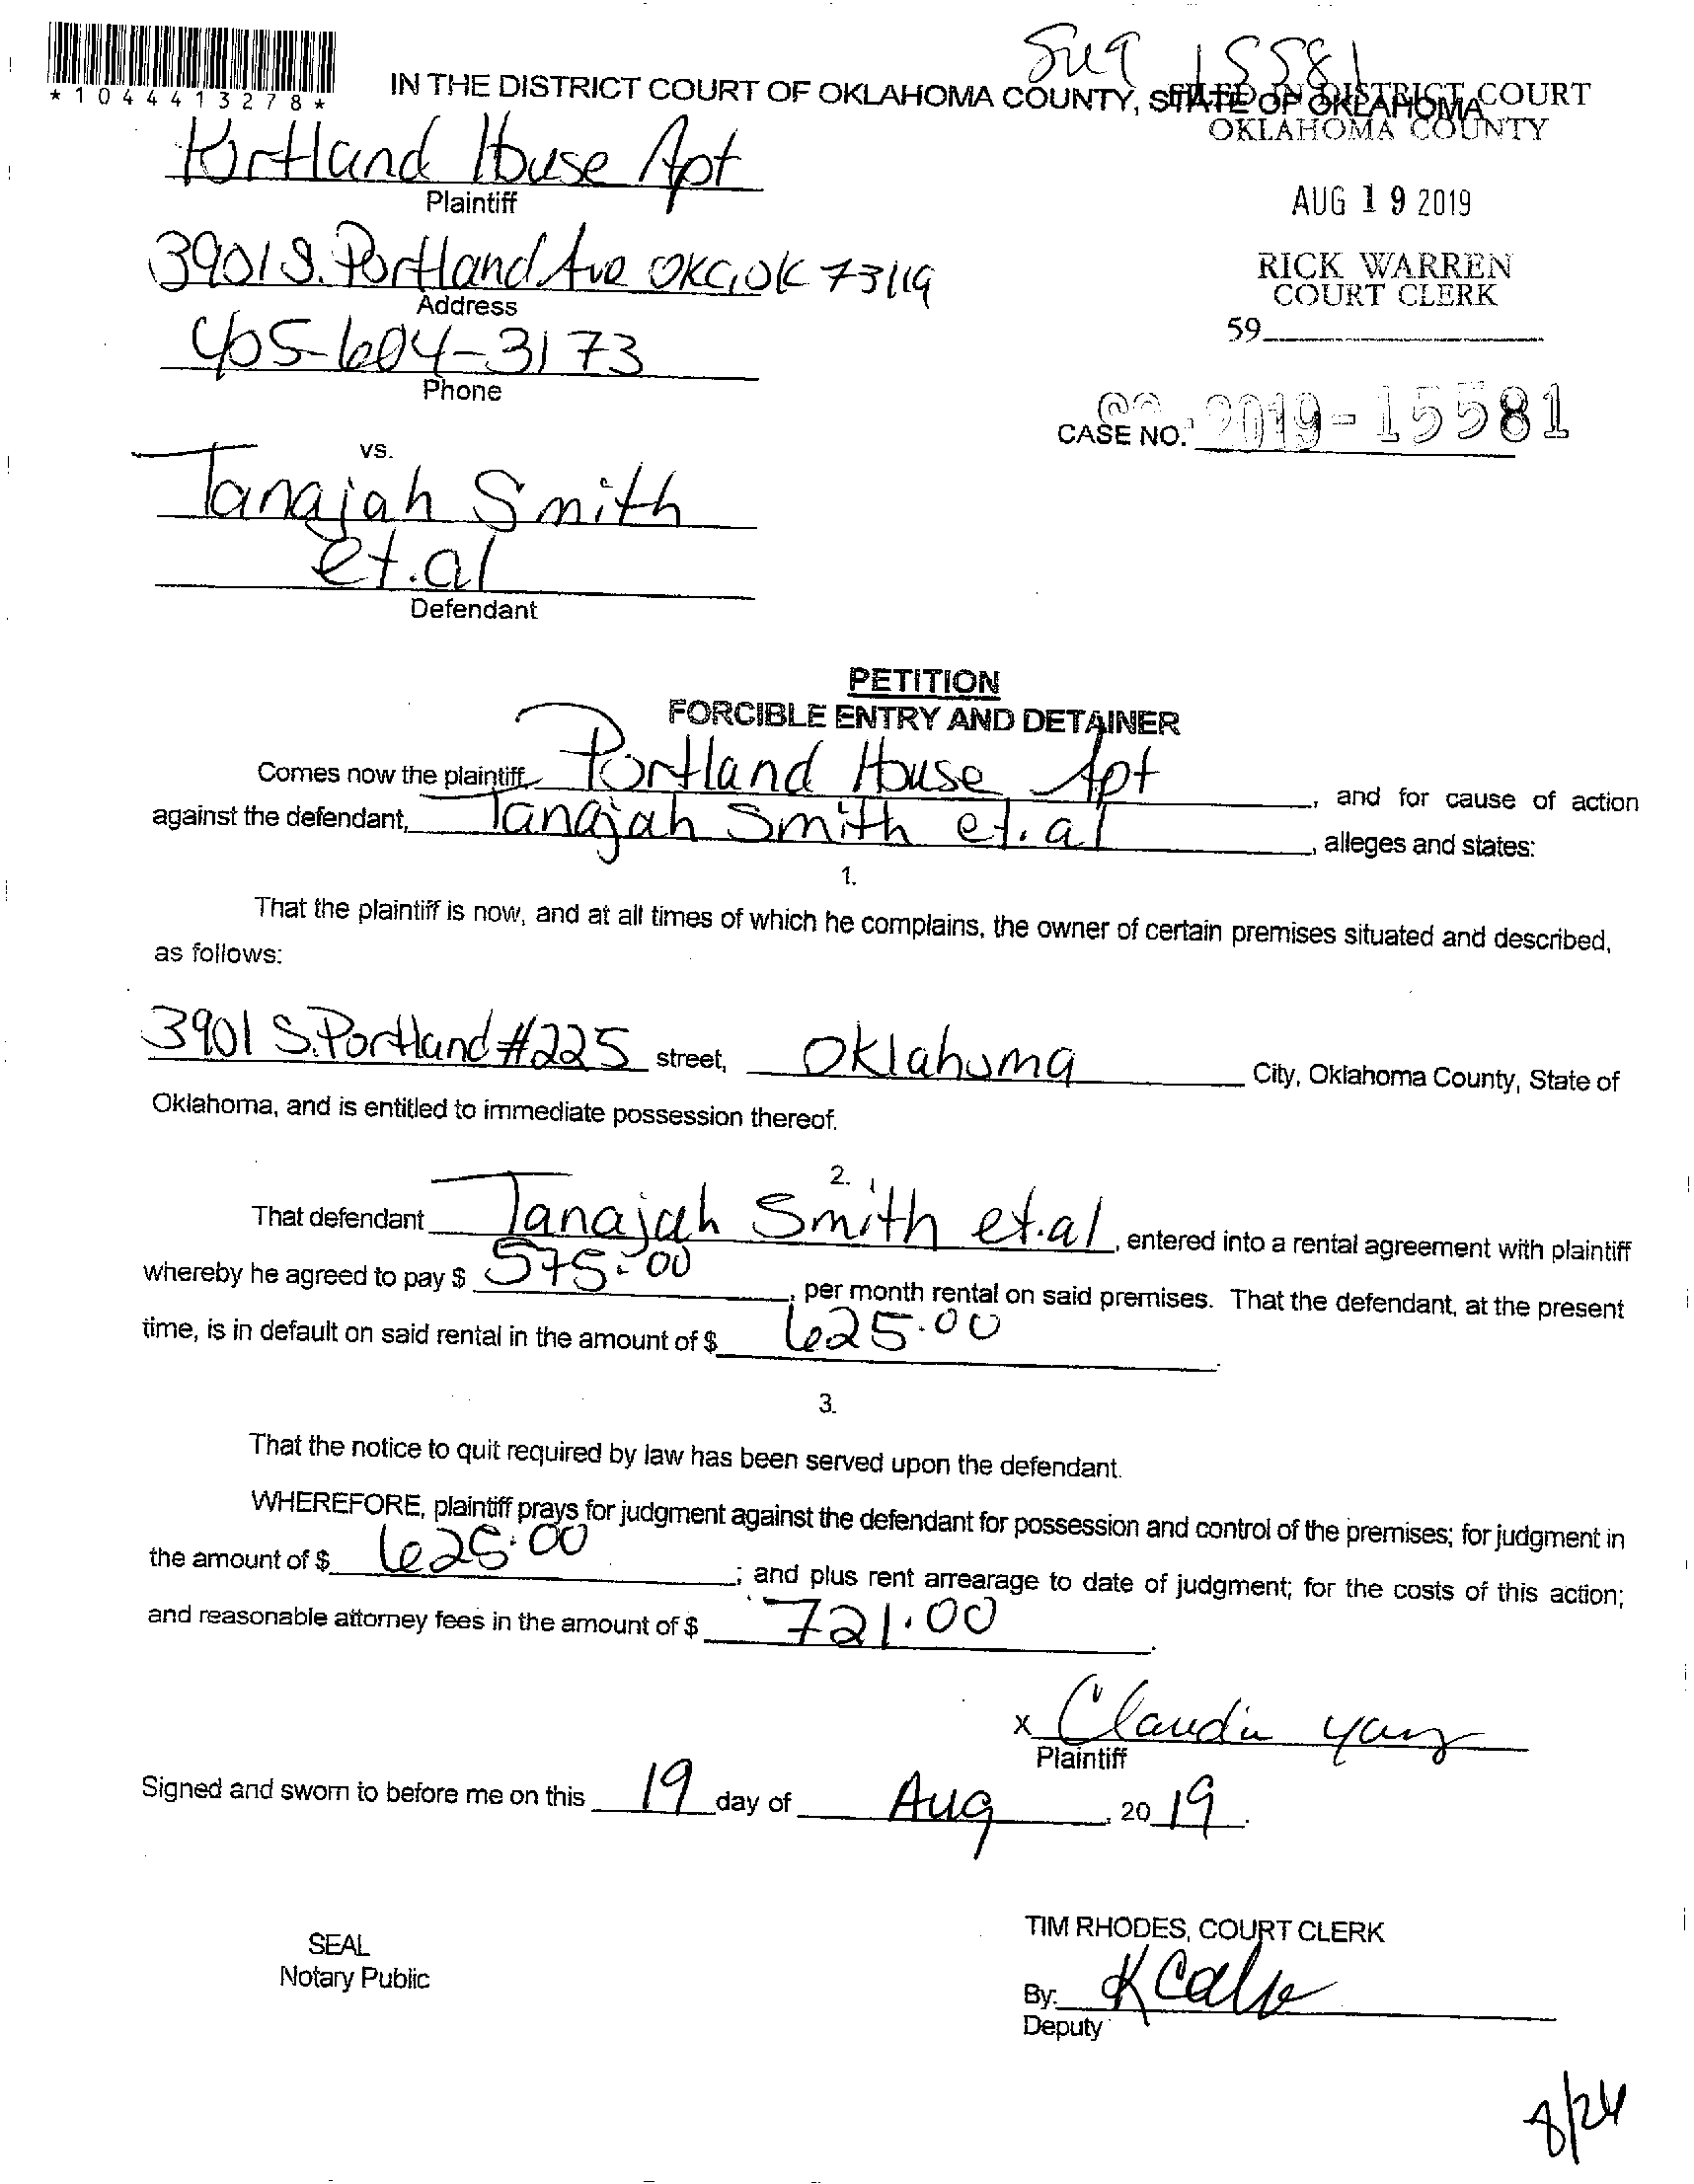 Sug 15581
*1044413278*
IN THE DISTRICT COURT OF OKLAHOMA COUNTY, STATE OF OKLAHOMA
FILED IN DISTRICT COURT
OKLAHOMA COUNTY
Portland House Apt
Plaintiff
AUG 19 2019
3901 S. Portland Ave OKC, OK 73119
Address
RICK WARREN
COURT CLERK
59
405-604-3173
Phone
CASE NO. 2019-15581
vs.
Tanajah Smith
et.al
Defendant
PETITION
FORCIBLE ENTRY AND DETAINER
Comes now the plaintiff Portland House Apt, and for cause of action
against the defendant, Tanajah Smith et.al, alleges and states:
1.
That the plaintiff is now, and at all times of which he complains, the owner of certain premises situated and described,
as follows:
3901 S. Portland #225 street, Oklahoma City, Oklahoma County, State of
Oklahoma, and is entitled to immediate possession thereof.
2.
That defendant Tanajah Smith et.al, entered into a rental agreement with plaintiff
whereby he agreed to pay $ 575.00, per month rental on said premises. That the defendant, at the present
time, is in default on said rental in the amount of $ 625.00.
3.
That the notice to quit required by law has been served upon the defendant.
WHEREFORE, plaintiff prays for judgment against the defendant for possession and control of the premises; for judgment in
the amount of $ 625.00; and plus rent arrearage to date of judgment; for the costs of this action;
and reasonable attorney fees in the amount of $ 721.00.
x Claudia
Plaintiff
Signed and sworn to before me on this 19 day of Aug, 2019.
SEAL
Notary Public
TIM RHODES, COURT CLERK
By:
Deputy
8/26